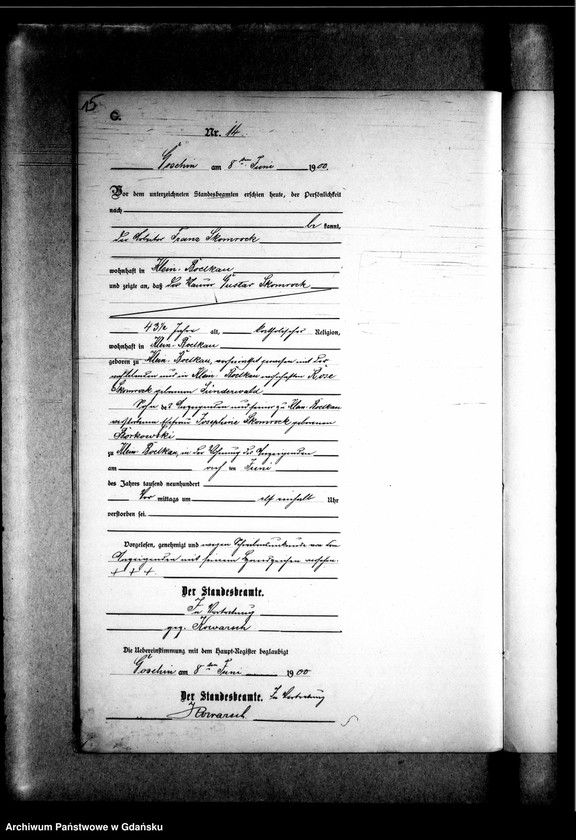 15
C.
Nr. 14.
Goschin am 8ten Juni 1900.
Vor dem unterzeichneten Standesbeamten erschien heute, der Persönlichkeit
nach
be kannt,
der Arbeiter Franz Skomrock
wohnhaft in Klein-Boelkau
und zeigte an, daß der Maurer Gustav Skomrock
43½ Jahre alt, katholischer Religion,
wohnhaft in Klein-Boelkau
geboren zu Klein-Boelkau, verheirathet gewesen mit der
noch lebenden und in Klein-Boelkau wohnhaften Rose
Skomrock geborenen Lünderwald
Sohn des Anzeigenden und seiner zu Klein-Boelkau
verstorbenen Ehefrau Josephine Skomrock geborenen
Borkowski
zu Klein-Boelkau, in der Wohnung des Anzeigenden
am Juni
des Jahres tausend neunhundert
Vor mittags um elf einhalb Uhr
verstorben sei.
Vorgelesen, genehmigt und wegen Schreibensunkunde von dem
Anzeigenden mit seinem Handzeichen versehen.
+ + +
Der Standesbeamte.
In Vertretung
gez. Kowarsch
Die Uebereinstimmung mit dem Haupt-Register beglaubigt
Goschin am 8ten Juni 1900
Der Standesbeamte. In Vertretung
Kowarsch
Archiwum Państwowe w Gdańsku